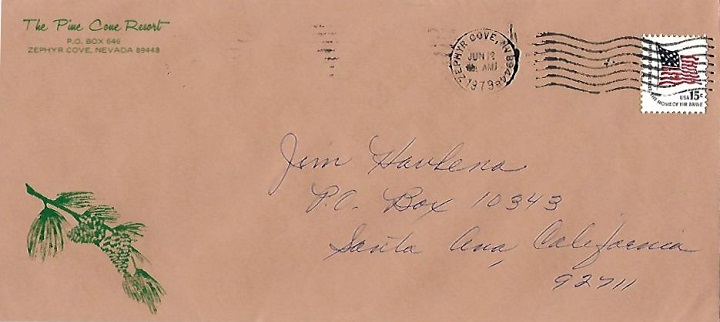 The Pine Cone Resort
P.O. BOX 646
ZEPHYR COVE, NEVADA 89448
ZEPHYR COVE, NV 89448
JUN
AM
1979
USA 15c
HOME OF THE BRAVE
Jim Havlena
P.O. Box 10343
Santa Ana, California
92711